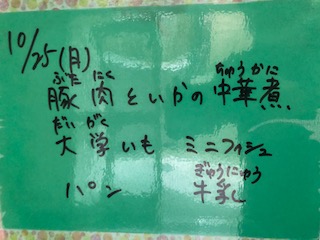 10/25(月)
ぶた にく ちゅうかに
豚肉といかの中華煮
だい がく
大学いも ミニフィッシュ
ぎゅうにゅう
パン 牛乳